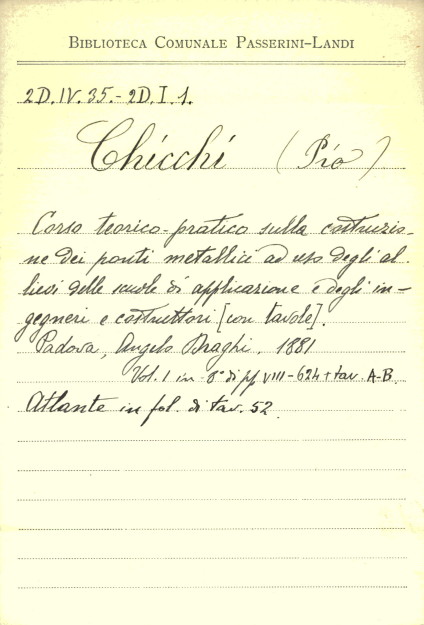 BIBLIOTECA COMUNALE PASSERINI-LANDI
2D.IV.35.-2D.I.1.
Chicchi (Pio)
Corso teorico-pratico sulla costruzio-
ne dei ponti metallici ad uso degli al-
lievi delle scuole di applicazione e degli in-
gegneri e costruttori [con tavole].
Padova, Angelo Draghi. 1881
Vol. 1 in 8° di pp VIII-624 + tav. A-B.
Atlante in fol. di tav. 52.